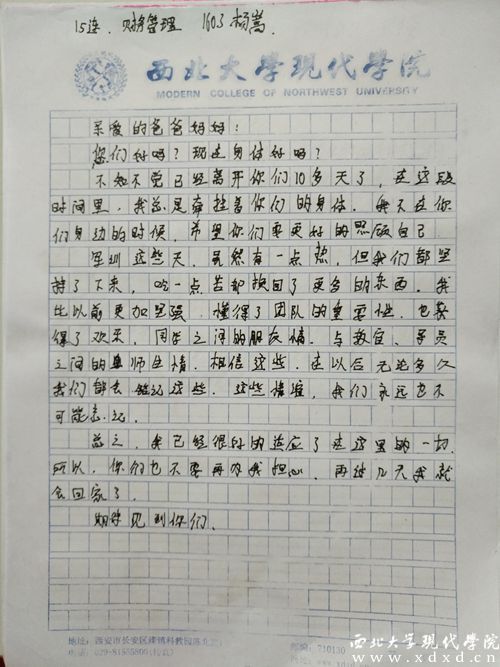 15连 财务管理 1603 杨嵩
西北大学现代学院
MODERN COLLEGE OF NORTHWEST UNIVERSITY
亲爱的爸爸妈妈:
您们好吗?现在身体好吗?
不知不觉已经离开你们10多天了,在这段
时间里,我总是牵挂着你们的身体,我不在你
们身边的时候,希望你们要更好的照顾自己
军训这些天,虽然有一点热,但我们都坚
持了下来,吃一点苦却换回了更多的东西,我
比以前更加坚强,懂得了团队的重要性,也获
得了欢乐,同学之间的朋友情,与教官、学员
之间的师生情,相信这些,在以后无论多久
我们都会铭记这些,这些情谊,我们永远也不
可能忘记。
总之,我已经很好的适应了在这里的一切,
所以,你们也不要再为我担心,再过几天我就
会回家了。
期待见到你们。
地址:西安市长安区滦镇科教园陈北路
电话:029-81555800(传真)
邮编:710130
西北大学现代学院
www.xdxd.cn